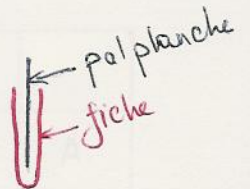 palplanche
fiche